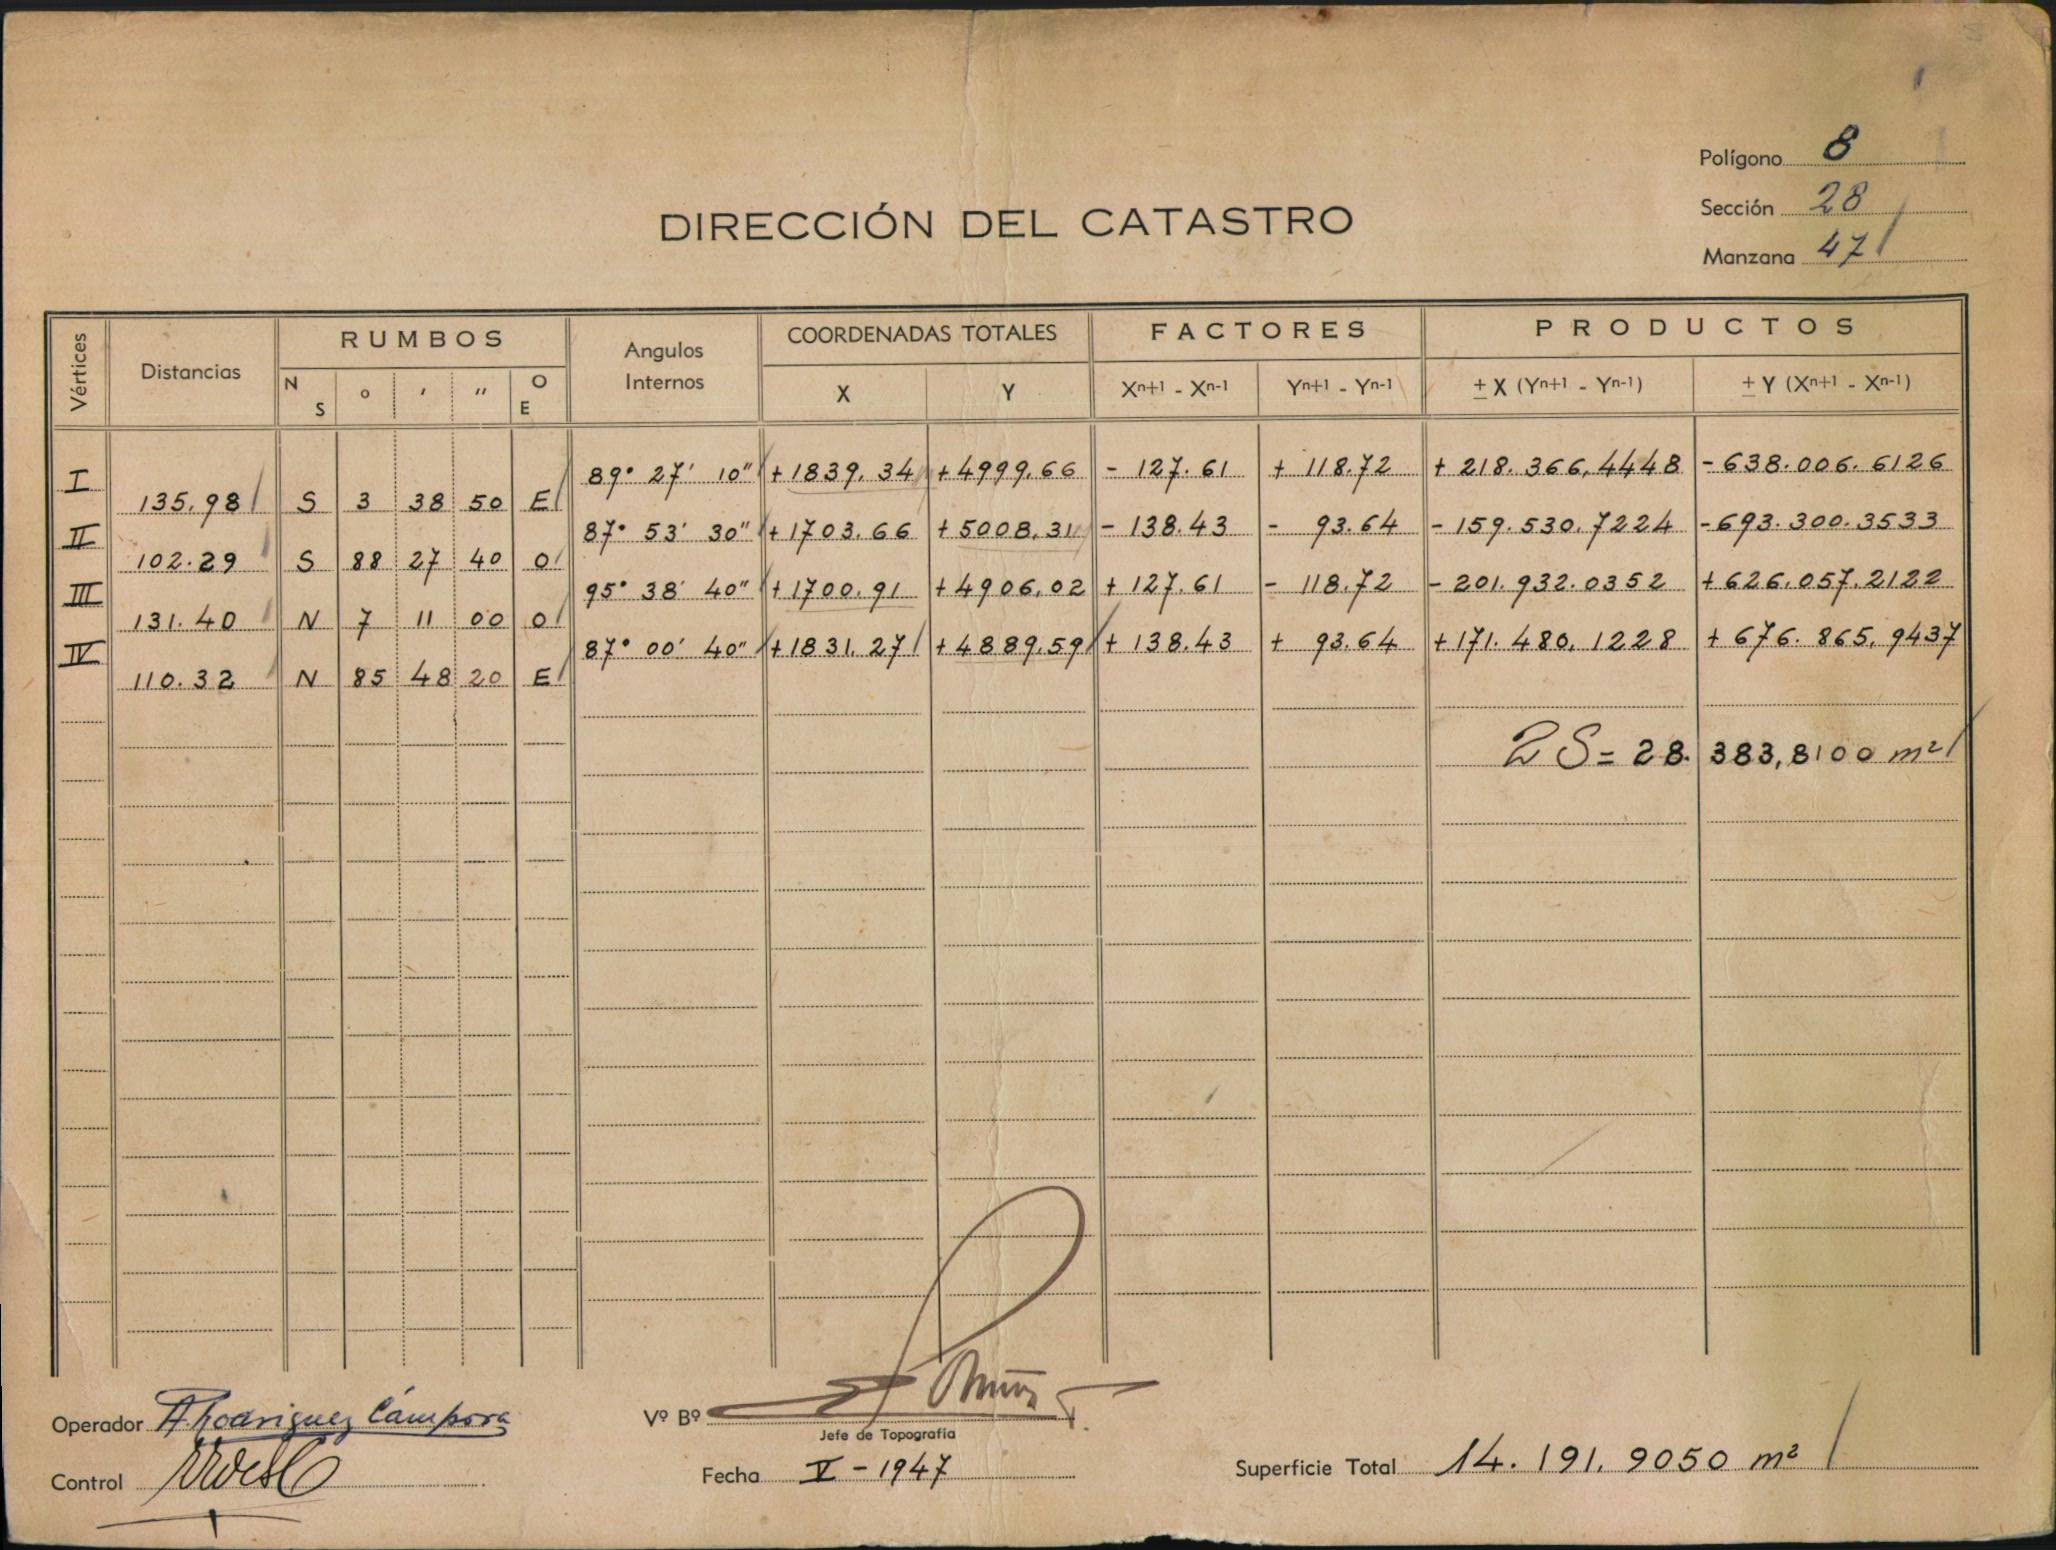 Polígono 8
Sección 28
Manzana 47
DIRECCIÓN DEL CATASTRO
Vértices Distancias RUMBOS Angulos Internos COORDENADAS TOTALES FACTORES PRODUCTOS
N S o ' " O E X Y Xn+1 - Xn-1 Yn+1 - Yn-1 ± X (Yn+1 - Yn-1) ± Y (Xn+1 - Xn-1)
I 89° 27' 10" + 1839.34 + 4999.66 - 127.61 + 118.72 + 218.366,4448 - 638.006.6126
135.98 S 3 38 50 E
II 87° 53' 30" + 1703.66 + 5008.31 - 138.43 - 93.64 - 159.530.7224 - 693.300.3533
102.29 S 88 27 40 O
III 95° 38' 40" + 1700.91 + 4906.02 + 127.61 - 118.72 - 201.932.0352 + 626.057.2122
131.40 N 7 11 00 O
IV 87° 00' 40" + 1831.27 + 4889.59 + 138.43 + 93.64 + 171.480.1228 + 676.865.9437
110.32 N 85 48 20 E
2S = 28.383,8100 m²
Operador A. Rodriguez Cámpora
Vº Bº Muñoz
Jefe de Topografia
Control
Fecha V - 1947
Superficie Total 14.191.9050 m²